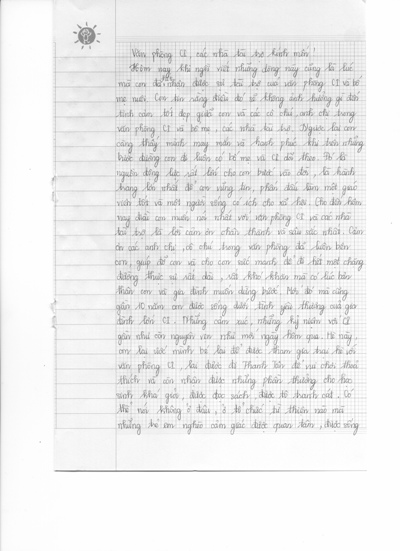 Văn phòng CI, các nhà tài trợ kính mến!
Hôm nay khi ngồi viết những dòng này cũng là lúc
mà con đã nhận được sự tài trợ của văn phòng CI và bố
mẹ nuôi. Con tin rằng điều đó sẽ không ảnh hưởng gì đến
tình cảm tốt đẹp giữa con và các cô chú, anh chị trong
văn phòng CI và bố mẹ, các nhà tài trợ. Ngược lại con
càng thấy mình may mắn và hạnh phúc khi trên những
bước đường con đi luôn có bố mẹ và CI dõi theo. Đó là
nguồn động lực rất lớn cho con bước vào đời, là hành
trang lớn nhất để con vững tin, phấn đấu làm một giáo
viên tốt và một người sống có ích cho xã hội. Cho đến hôm
nay điều con muốn nói nhất với văn phòng CI và các nhà
tài trợ là lời cảm ơn chân thành và sâu sắc nhất. Cảm
ơn các anh chị, cô chú trong văn phòng đã luôn bên
con, giúp đỡ con và cho con sức mạnh để đi hết một chặng
đường thực sự rất dài, rất khó khăn mà có lúc bản
thân con và gia đình muốn dừng bước. Mới đó mà cũng
gần 10 năm con được sống dưới tình yêu thương của gia
đình lớn CI. Những cảm xúc, những kỷ niệm với CI
gần như còn nguyên vẹn như mới ngày hôm qua. Hè này,
con lại ước mình bé lại để được tham gia trại hè với
văn phòng CI, lại được đi Thanh Tân để vui chơi thoải
thích và còn nhận được những phần thưởng cho học
sinh khá giỏi, được đọc sách, được tô tranh cát. Có
thể nói không ở đâu, ở tổ chức từ thiện nào mà
những trẻ em nghèo cảm giác được quan tâm, được sống